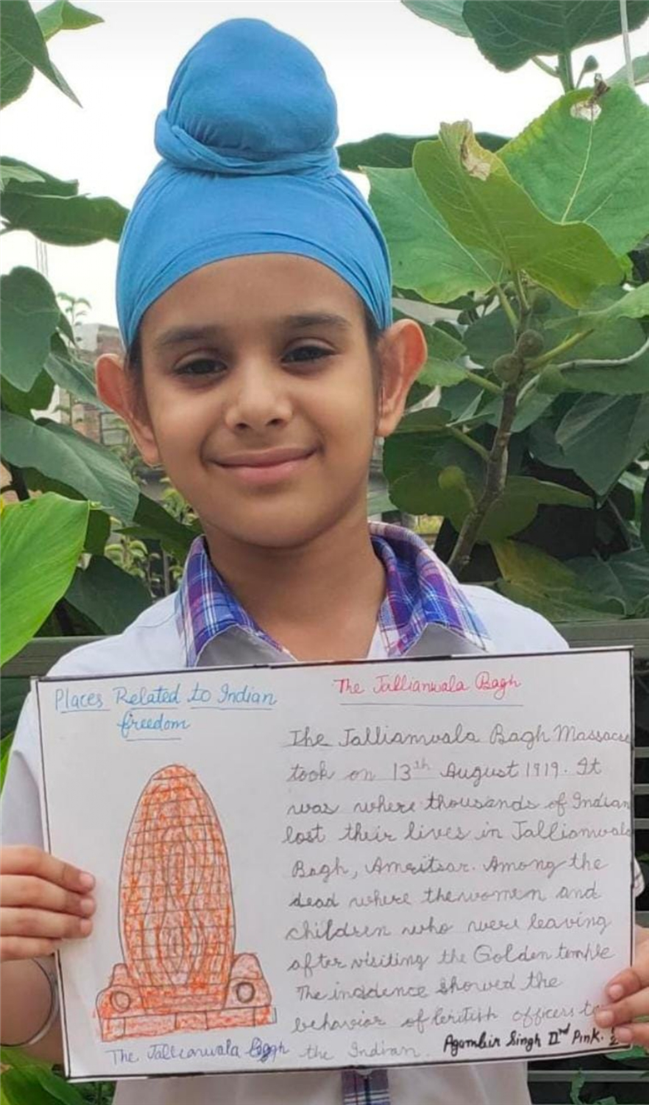 Places Related to Indian
freedom
The Jallianwala Bagh
The Jallianwala Bagh Massacre
took on 13th August 1919. It
was where thousands of Indian
lost their lives in Jallianwala
Bagh, Amritsar. Among the
dead where thewomen and
children who were leaving
after visiting the Golden temple
The inscidence showed the
behavior of british officers to
the Indian.
The Jallianwala Bagh
Agambir Singh IInd Pink.